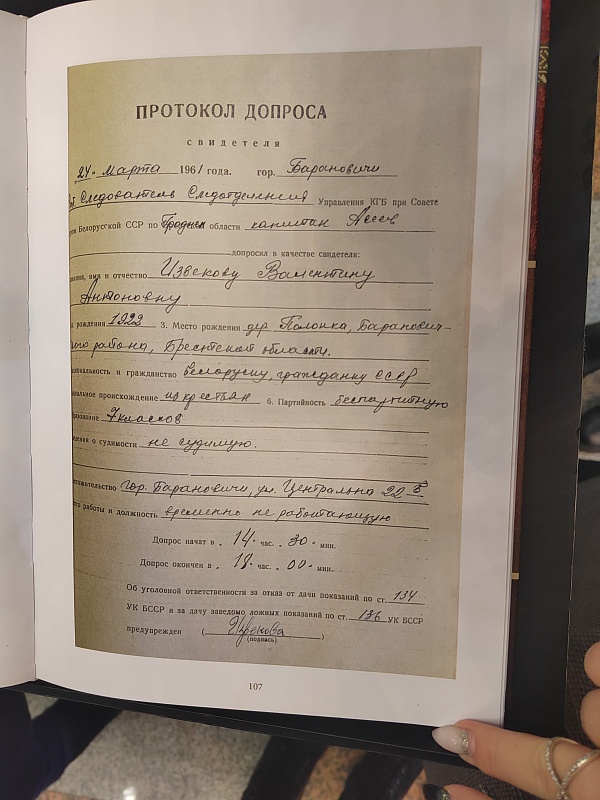 ПРОТОКОЛ ДОПРОСА
свидетеля
24 марта 1961 года. гор. Барановичи
Следователь Следотделения Управления КГБ при Совете
Белорусской ССР по Гроднен области капитан Асеев
допросил в качестве свидетеля:
имя и отчество Извекову Валентину
Антоновну
рождения 1922 3. Место рождения дер. Полонка, Баранович-
района, Брестской области.
и гражданство белоруску, гражданку СССР
происхождение из крестьян 6. Партийность беспартийную
7 классов
о судимости не судимую.
гор. Барановичи, ул. Центральна 22
работы и должность временно не работающую
Допрос начат в 14 час. 30 мин.
Допрос окончен в 18 час. 00 мин.
Об уголовной ответственности за отказ от дачи показаний по ст. 134
УК БССР и за дачу заведомо ложных показаний по ст. 136 УК БССР
предупрежден (Извекова)
(подпись)
107